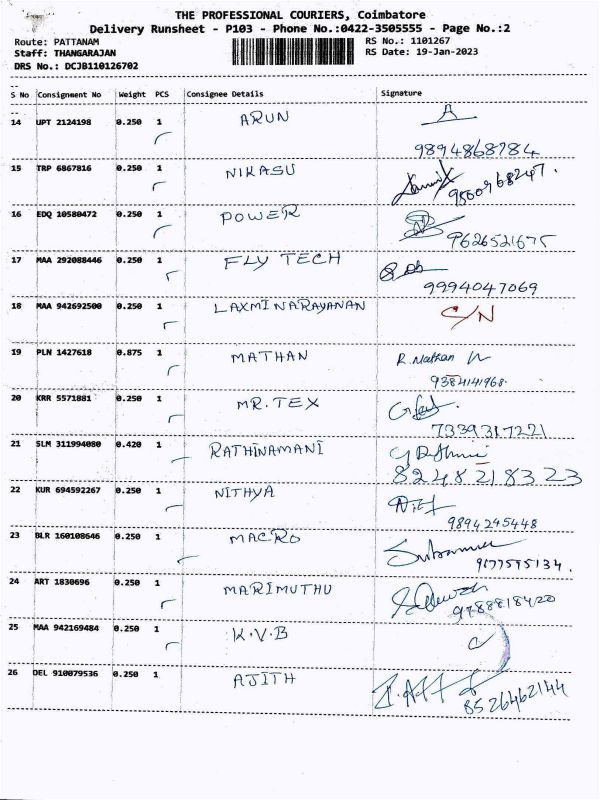 THE PROFESSIONAL COURIERS, Coimbatore
Delivery Runsheet - P103 - Phone No.:0422-3505555 - Page No.:2
Route: PATTANAM RS No.: 1101267
Staff: THANGARAJAN RS Date: 19-Jan-2023
DRS No.: DCJB110126702
S No Consignment No Weight PCS Consignee Details Signature
14 UPT 2124198 0.250 1 ARUN
9894868784
15 TRP 6867816 0.250 1 NIKASU
16 EDQ 10580472 0.250 1 POWER
9626521675
17 MAA 292088446 0.250 1 FLY TECH
9994047069
18 MAA 942692500 0.250 1 LAXMINARAYANAN C/N
19 PLN 1427618 0.875 1 MATHAN R. Mathan
9384141968.
20 KRR 5571881 0.250 1 MR.TEX
7339317221
21 SLM 311994080 0.420 1 RATHINAMANI
8248218323
22 KUR 694592267 0.250 1 NITHYA
9894245448
23 BLR 160108646 0.250 1 MACRO
9177595134.
24 ART 1830696 0.250 1 MARIMUTHU
9788818420
25 MAA 942169484 0.250 1 K.V.B
26 DEL 910079536 0.250 1 AJITH
8526462144